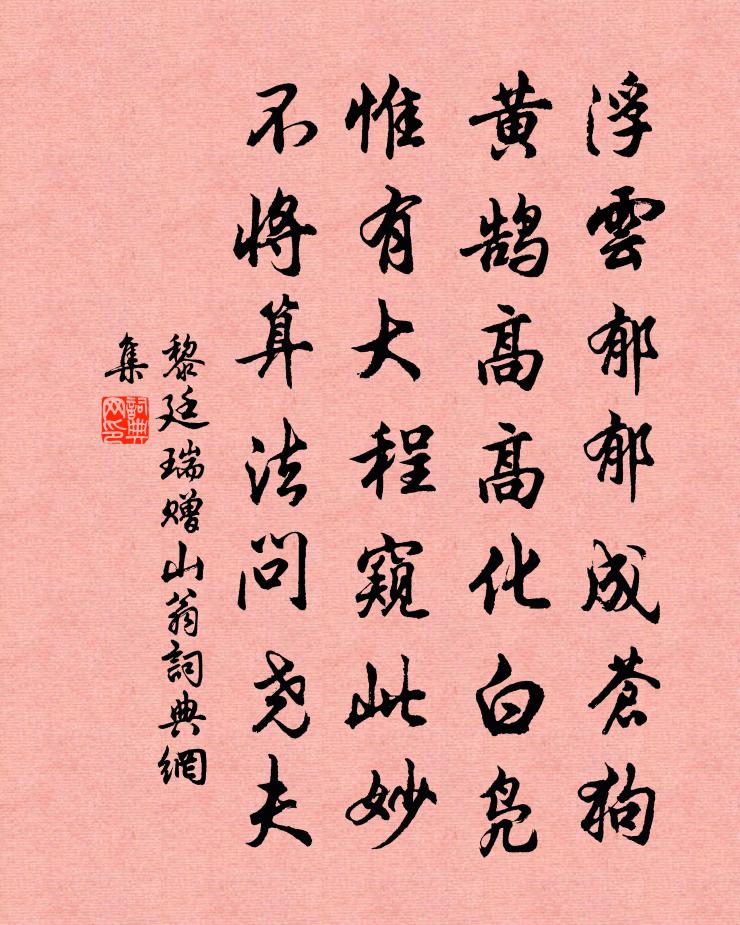 浮雲郁郁成蒼狗
黄鹄高高化白凫
惟有大程窺此妙
不将算法问尧夫
黎廷瑞赠山翁詞典網
集
詞典
网印